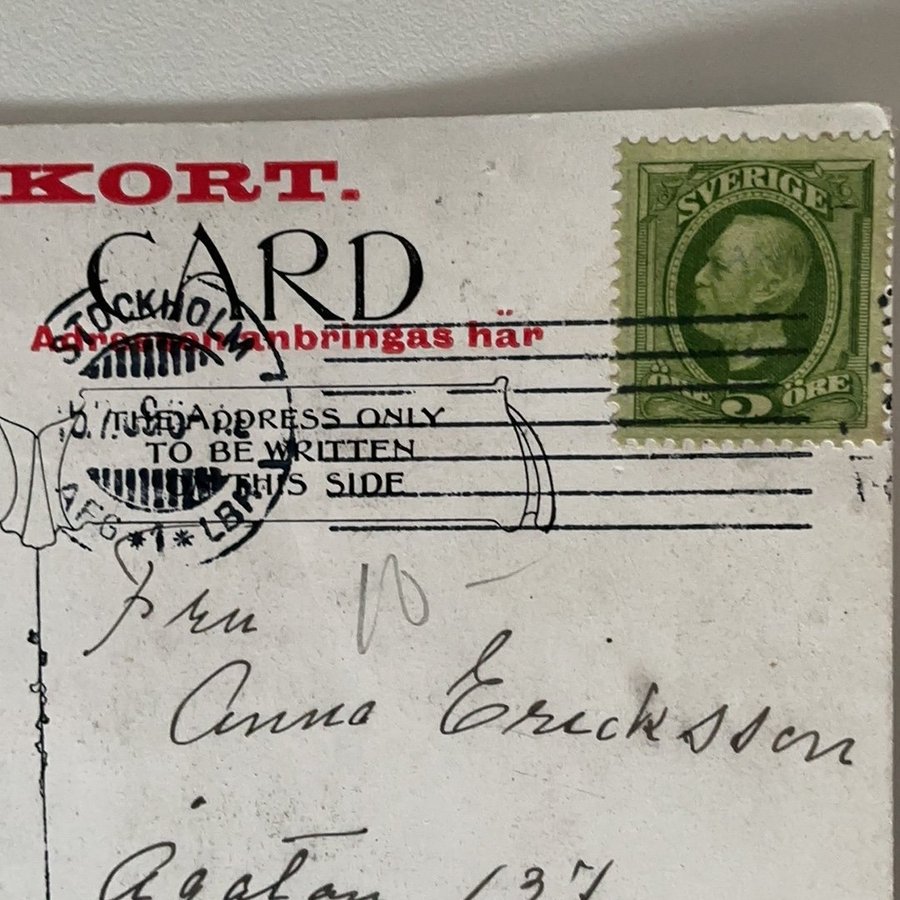 KORT.
CARD
Adressen anbringas här
STOCKHOLM
THE ADDRESS ONLY
TO BE WRITTEN
ON THIS SIDE
*1* LBR.
SVERIGE
ÖRE 5 ÖRE
10 -
Fru
Anna Ericksson
Ågatan 137